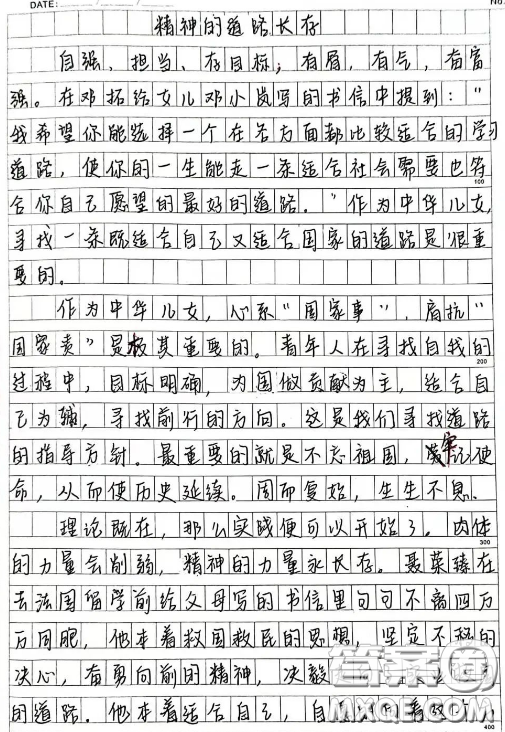 DATE: No.
精神的道路长存
自强、担当、存目标；有眉，有气，有富
强。在邓拓给女儿邓小岚写的书信中提到："
我希望你能选择一个在各方面都比较适合的学习
道路，使你的一生能走一条适合社会需要也符
100
合你自己愿望的最好的道路。"作为中华儿女，
寻找一条既适合自己又适合国家的道路是很重
要的。
作为中华儿女，心系"国家事"，肩抗"
国家责"是极其重要的。青年人在寻找自我的
200
过程中，目标明确，为国做贡献为主，结合自
己为辅，寻找前行的方向。这是我们寻找道路
的指导方针。最重要的就是不忘祖国，牢记使
命，从而使历史延续。周而复始，生生不息。
理论既在，那么实践便可以开始了。肉体
300
的力量会削弱，精神的力量永长存。聂荣臻在
去法国留学前给父母写的书信里句句不离四万
万同胞，他本着救国救民的思想，坚定不移的
决心，有勇向前的精神，决毅
的道路。他本着适合自己，自
400
答案圈